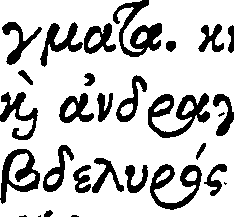 γματα. κι
κὶ ἀνδραγ
βδελυρός